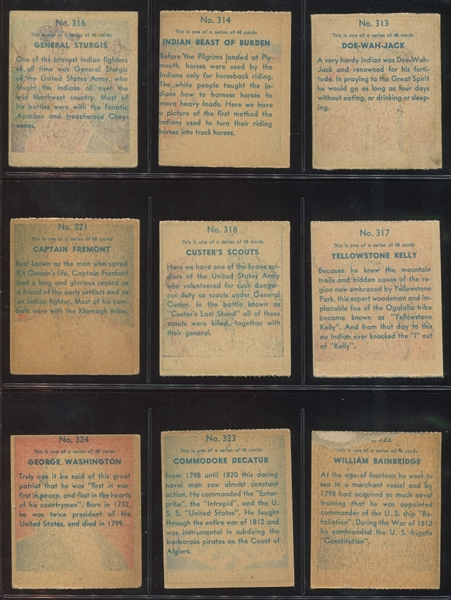 No. 316
This is one of a series of 48 cards
GENERAL STURGIS
One of the bravest Indian fighters
of all time was General Sturgis
of the United States Army, who
fought the Indians all over the
wild Northwest country. Most of
his battles were with the fanatic
Apaches and treacherous Chey-
ennes.
No. 314
This is one of a series of 48 cards
INDIAN BEAST OF BURDEN
Before the Pilgrims landed at Ply-
mouth, horses were used by the
Indians only for horseback riding.
The white people taught the In-
dians how to harness horses to
move heavy loads. Here we have
a picture of the first method the
Indians used to turn their riding
horses into truck horses.
No. 313
This is one of a series of 48 cards
DOE-WAH-JACK
A very hardy Indian was Doe-Wah-
Jack and renowned for his forti-
tude. In praying to the Great Spirit
he would go as long as four days
without eating, or drinking or sleep-
ing.
No. 321
This is one of a series of 48 cards
CAPTAIN FREMONT
Best known as the man who saved
Kit Carson's life, Captain Fremont
had a long and glorious record as
a friend of the early settlers and as
an Indian fighter. Most of his com-
bats were with the Klamagh tribe.
No. 318
This is one of a series of 48 cards
CUSTER'S SCOUTS
Here we have one of the brave sol-
diers of the United States Army
who volunteered for such danger-
ous duty as scouts under General
Custer. In the battle known as
"Custer's Last Stand" all of these
scouts were killed, together with
their general.
No. 317
This is one of a series of 48 cards
YELLOWSTONE KELLY
Because he knew the mountain
trails and hidden caves of the re-
gion now embraced by Yellowstone
Park, this expert woodsman and im-
placable foe of the Ogalalla tribe
became known as "Yellowstone
Kelly". And from that day to this
no Indian ever knocked the "l" out
of "Kelly".
No. 324
This is one of a series of 48 cards
GEORGE WASHINGTON
Truly can it be said of this great
patriot that he was "First in war,
first in peace, and first in the hearts
of his countrymen". Born in 1732,
he was twice president of the
United States, and died in 1799.
No. 323
This is one of a series of 48 cards
COMMODORE DECATUR
From 1798 until 1820 this daring
naval man saw almost constant
action. He commanded the "Enter-
prise", the "Intrepid" and the U.
S. S. "United States". He fought
through the entire war of 1812 and
was instrumental in subduing the
barbarous pirates on the Coast of
Algiers.
This is one of a series of 48 cards
WILLIAM BAINBRIDGE
At the age of fourteen he went to
sea in a merchant vessel and by
1798 had acquired so much naval
training that he was appointed
commander of the U. S. ship "Re-
taliation". During the War of 1812
he commanded the U. S. frigate
"Constitution".